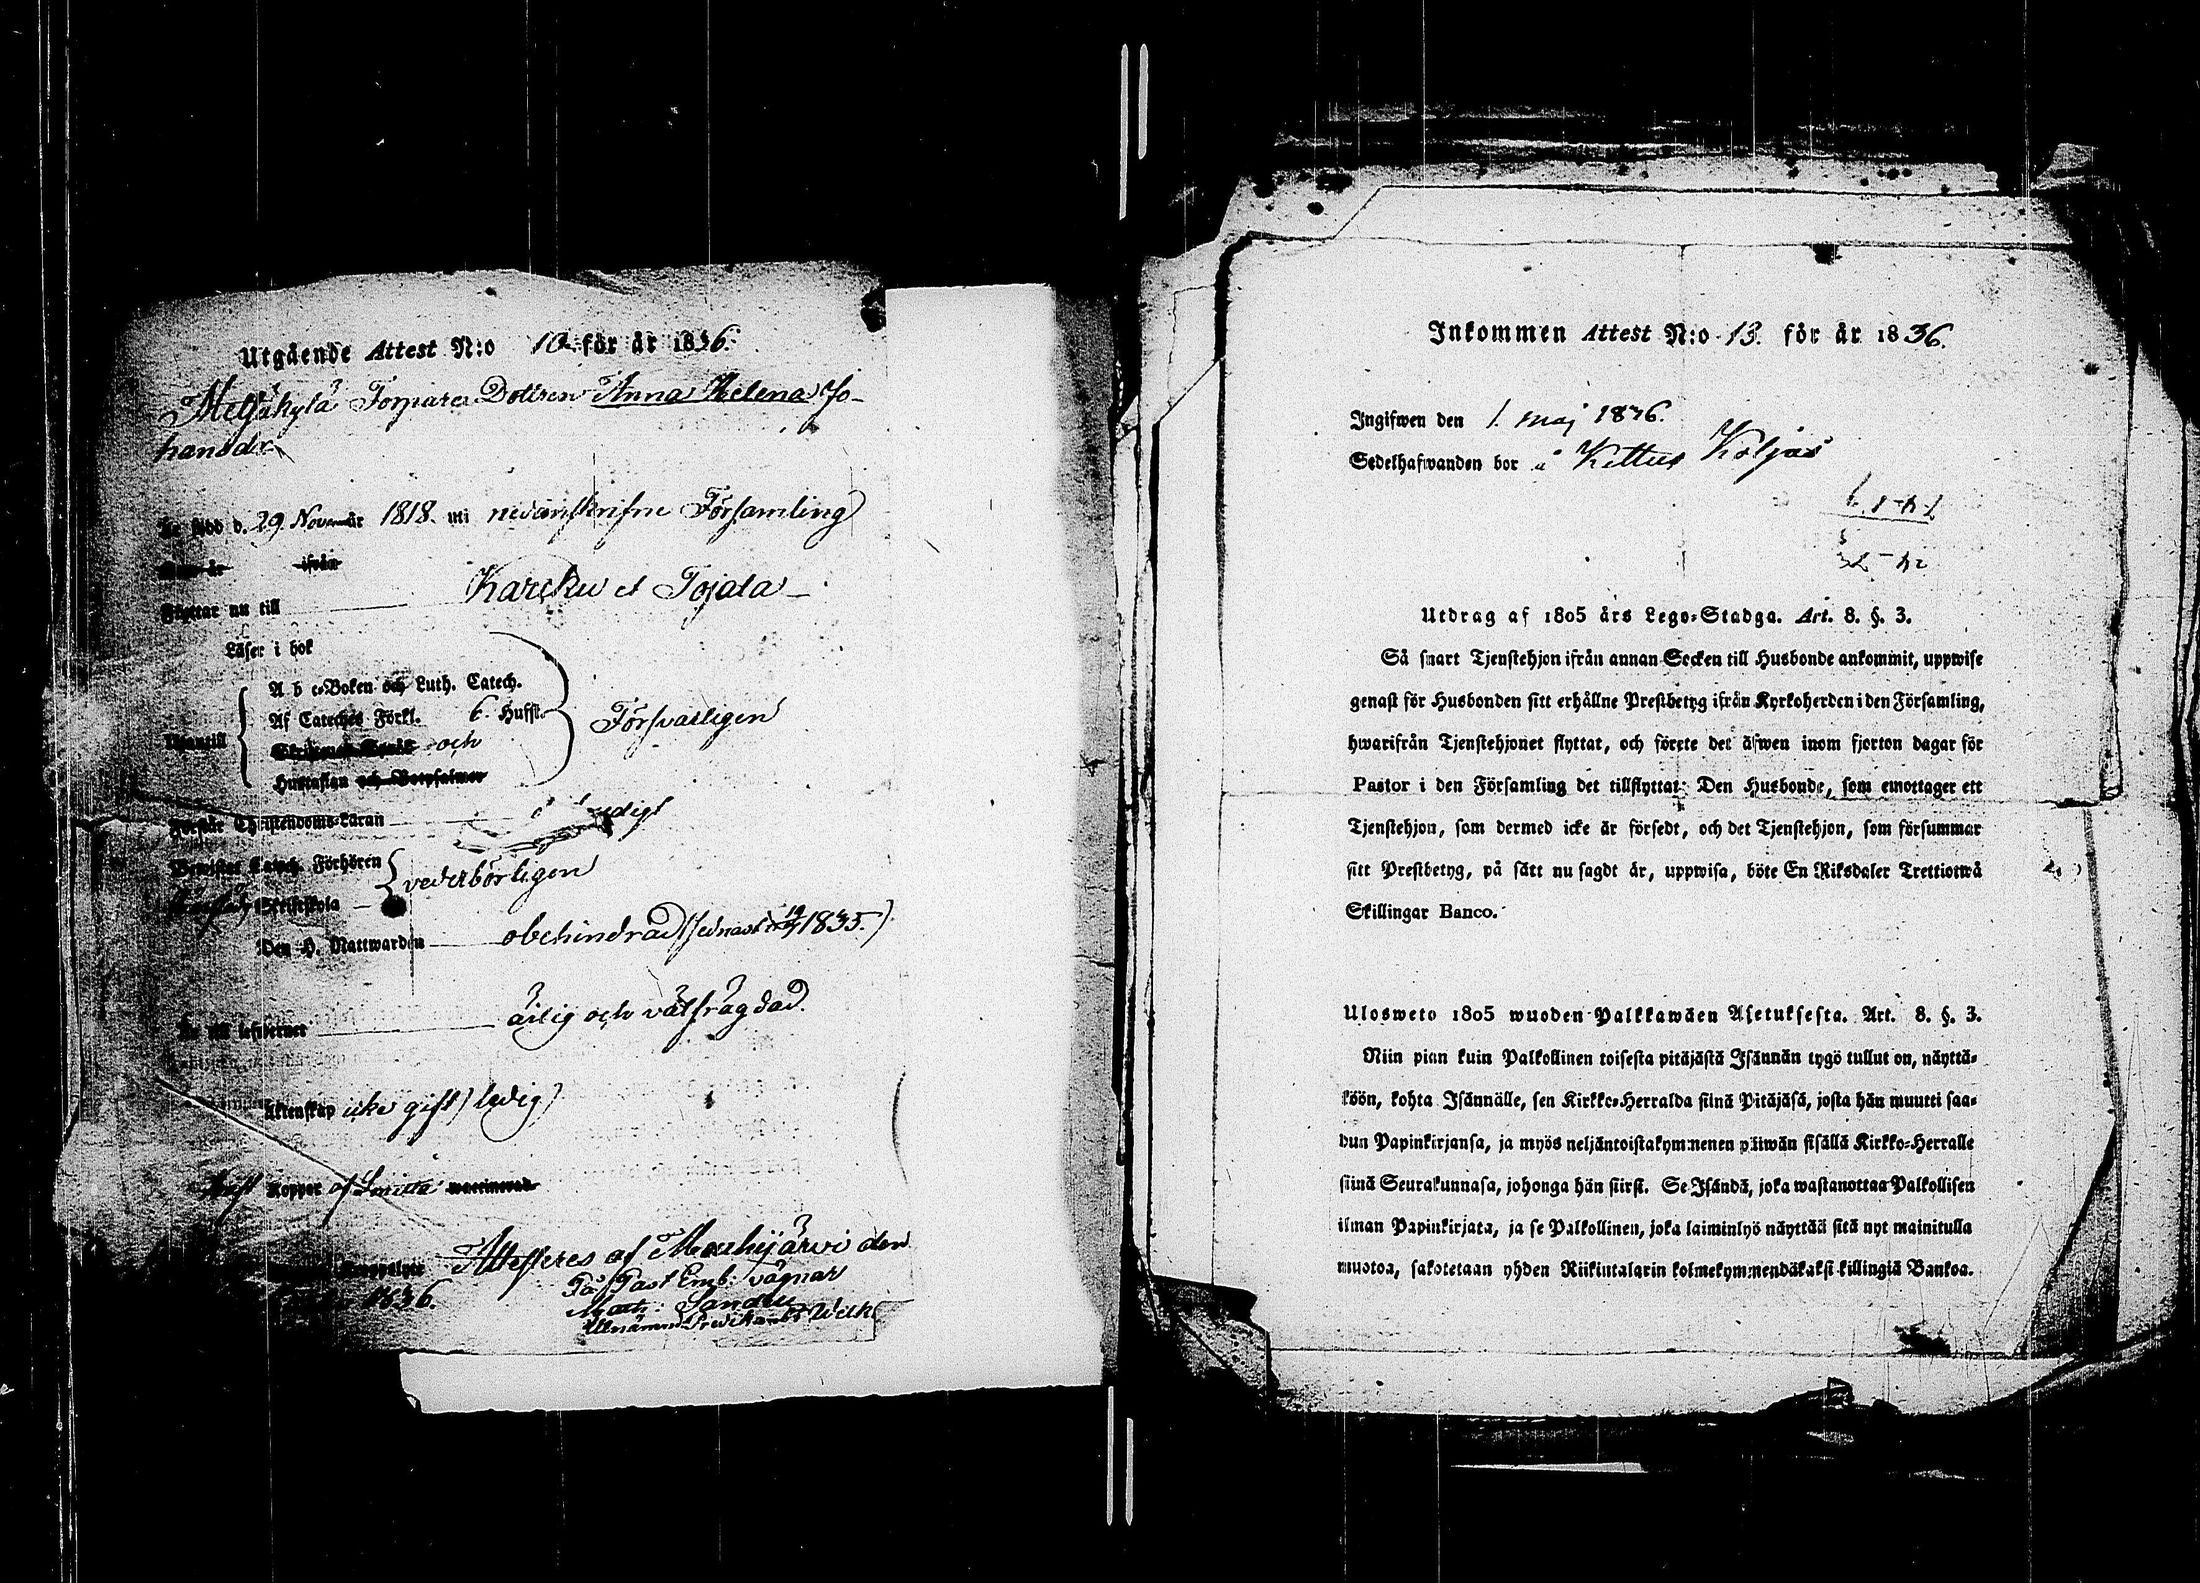 Utgående Attest N:o 10 för år 1836.
Meljäkylä Torpare Dottren Anna Helena Jo-
hansdr
Är född d. 29 Novem år 1818. uti nedanskrifne Församling
ifrån
Flyttar nu till Karcku et Tojala
Läser i bok
A b c-Boken och Luth. Catech.
Af Cateches Förkl. 6. Hufst.
Utantill och Försvarligen
Hustaflan och Botpsalmer
Förstår Christendoms-Läran
Bewistat Catech. Förhören
vederbörligen
Skriftskola
Den H. Nattwarden obehindrad (sednast d. 19/4 1835.)
Är till lefwernet ärlig och välfrägdad.
Äktenskap icke gift, ledig
Haft Koppor af Smitta waccinerad
Attesteres af Mouhijärvi den
1836. På Past. Emb: vägnar
Math: Sandell
Utnämnd Predikant
Inkommen Attest N:o 13. för år 1836.
Ingifwen den 1. maj 1836.
Sedelhafwanden bor å Kettus Koljas
Utdrag af 1805 års Lego-Stadga. Art. 8. §. 3.
Så snart Tjenstehjon ifrån annan Socken till Husbonde ankommit, uppwise
genast för Husbonden sitt erhållne Prestbetyg ifrån Kyrkoherden i den Församling,
hwarifrån Tjenstehjonet flyttat, och förete det äfwen inom fjorton dagar för
Pastor i den Församling det tillflyttat: Den Husbonde, som emottager ett
Tjenstehjon, som dermed icke är försedt, och det Tjenstehjon, som försummar
sitt Prestbetyg, på sätt nu sagdt är, uppwisa, böte En Riksdaler Trettiotwå
Skillingar Banco.
Ulosweto 1805 wuoden Palkkawäen Asetuksesta. Art. 8. §. 3.
Niin pian kuin Palkollinen toisesta pitäjästä Isännän tygö tullut on, näyttä-
köön, kohta Isännälle, sen Kirkko-Herralda siinä Pitäjäsä, josta hän muutti saa-
dun Papinkirjansa, ja myös neljäntoistakymmenen päiwän sisällä Kirkko-Herralle
siinä Seurakunnasa, johonga hän siirsi. Se Isändä, joka wastanottaa Palkollisen
ilman Papinkirjata, ja se Palkollinen, joka laiminlyö näyttää sitä nyt mainitulla
muotoa, sakotetaan yhden Riikintalarin kolmekymmendäkaksi killingiä Bankoa.